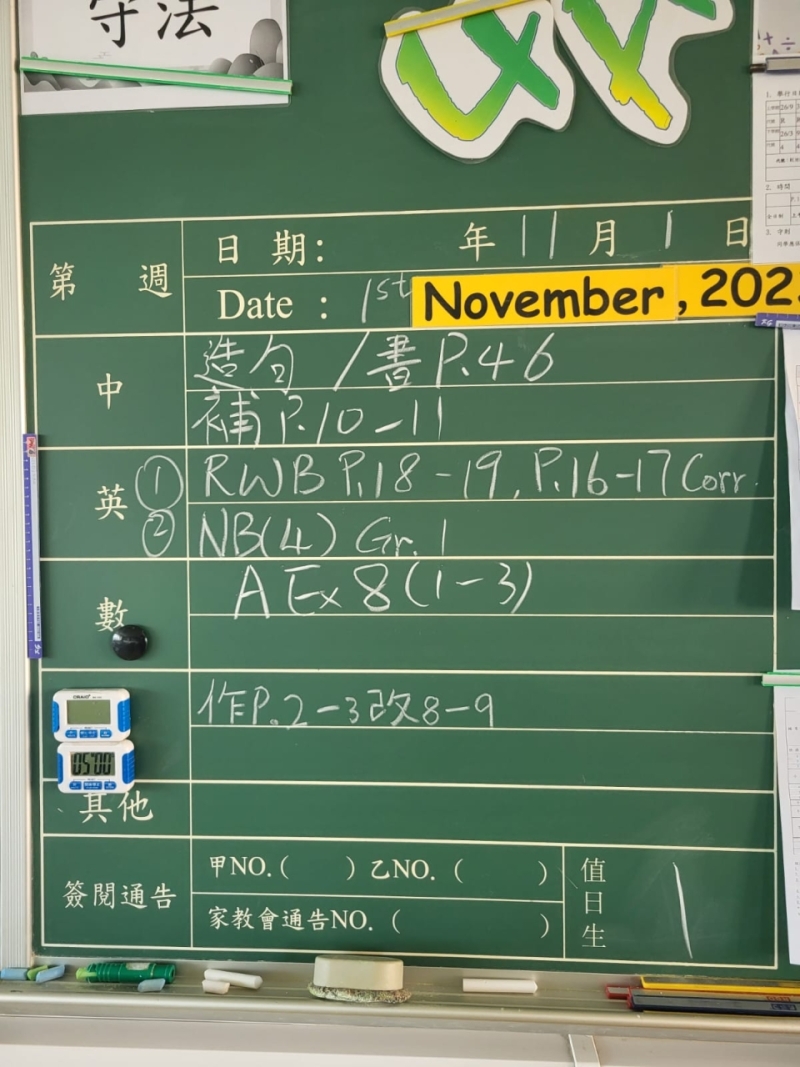 守法
日 期： 年 11 月 1 日
第 週
Date : 1st November, 202
中
造句 / 書 P.46
補 P.10-11
英
① RWB P.18-19, P.16-17 Corr.
② NB(4) Gr.1
數
A Ex 8 (1-3)
作P.2-3改8-9
05:00
其他
簽閱通告
甲NO.( ) 乙NO. ( )
家教會通告NO. ( )
值日生
1